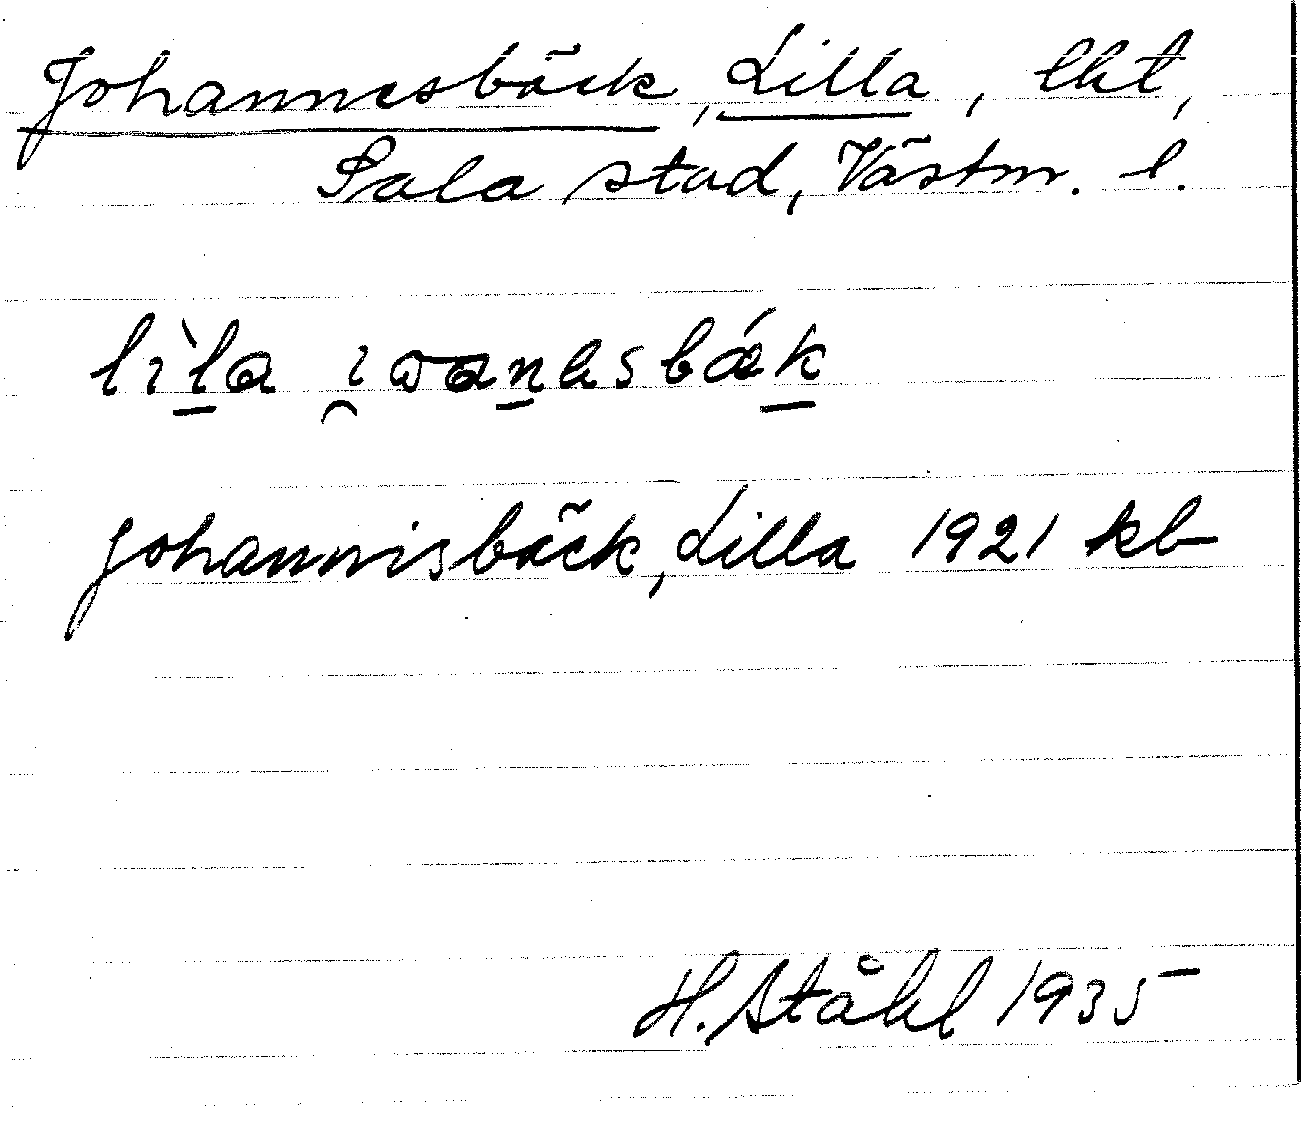 Johannesbäck, Lilla, lht,
Sala stad, Västm. l.
lìla i̯ωanasbǽk
Johannisbäck, Lilla 1921 kb
H. Ståhl 1935